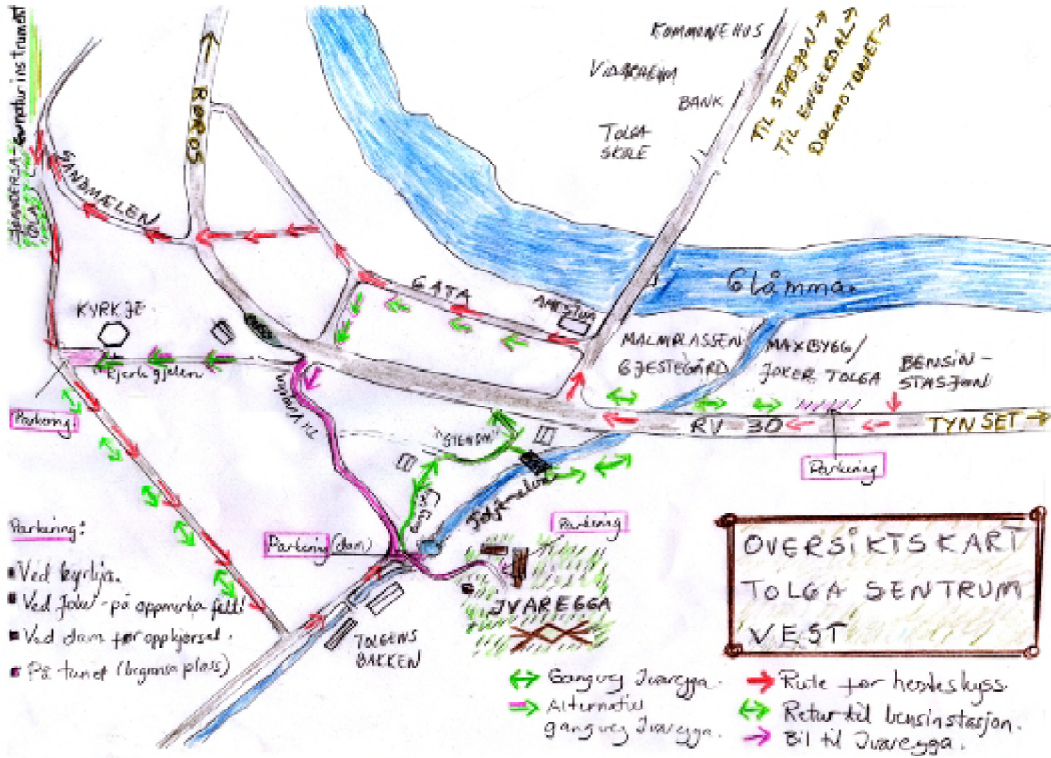 KOMMUNEHUS
VIDARHEIM
BANK
TOLGA
SKOLE
TIL STASJON →
TIL ENGERDAL →
DALMOTUNET →
RØROS
SANDMÆLEN
GATA
Glåmma
KYRKJE
Kjerkgjelen
Parkering
MALMPLASSEN
GJESTEGÅRD
MAXBYGG/
JOKER TOLGA
BENSIN-
STASJON
RV 30
TYNSET
Parkering
Parkering (dam)
Parkering
JVAREGGA
TOLGENS
BAKKEN
Parkering:
Ved kyrkja.
Ved Joker - på oppmerka felt!
Ved dam før oppkjørsel.
På tunet (begrensa plass)
OVERSIKTSKART
TOLGA SENTRUM
VEST
Gangveg Jvaregga.
Alternativ
gangveg Jvaregga.
Rute for hesteskyss.
Retur til bensinstasjon.
Bil til Jvaregga.